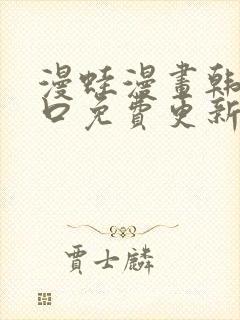 漫蛙漫畫韩
口免費更新
賈士麟